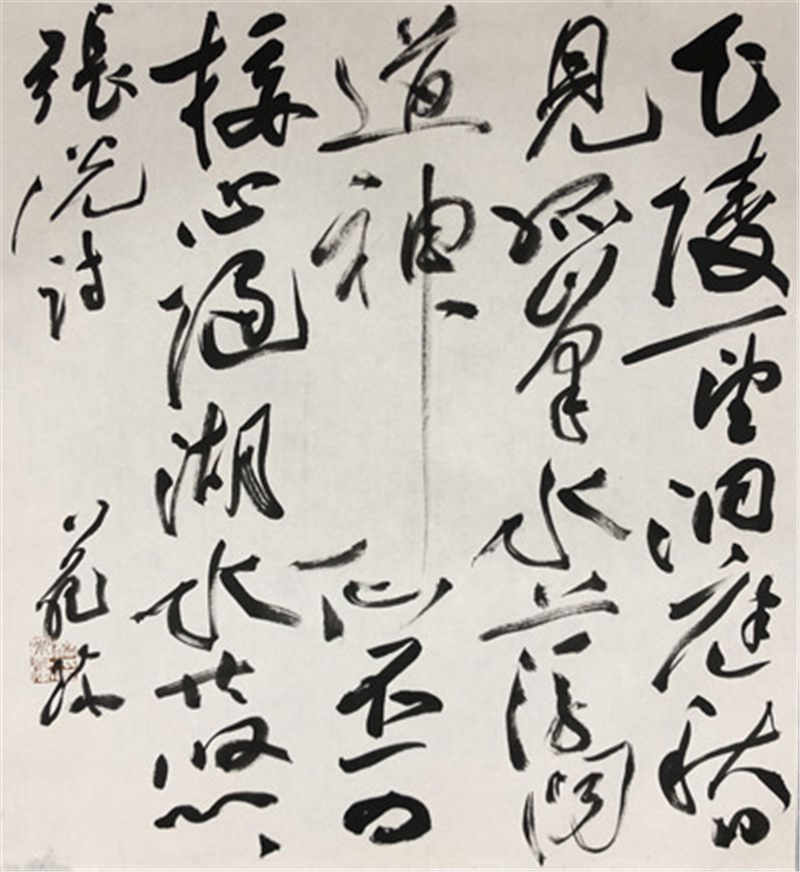 巴陵一望洞庭秋日
見孤峯水上浮聞
道神仙不可
接心隨湖水共悠〻
張説詩